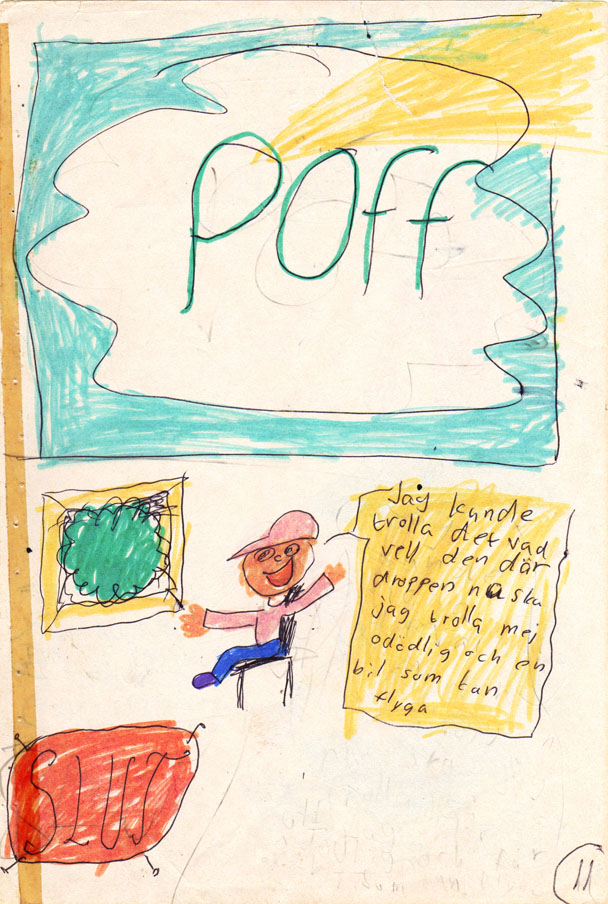 POFF
Jag kunde
trolla det vad
vell den där
droppen na ska
jag trolla mej
odödlig och en
bil som kan
flyga
SLUT
11